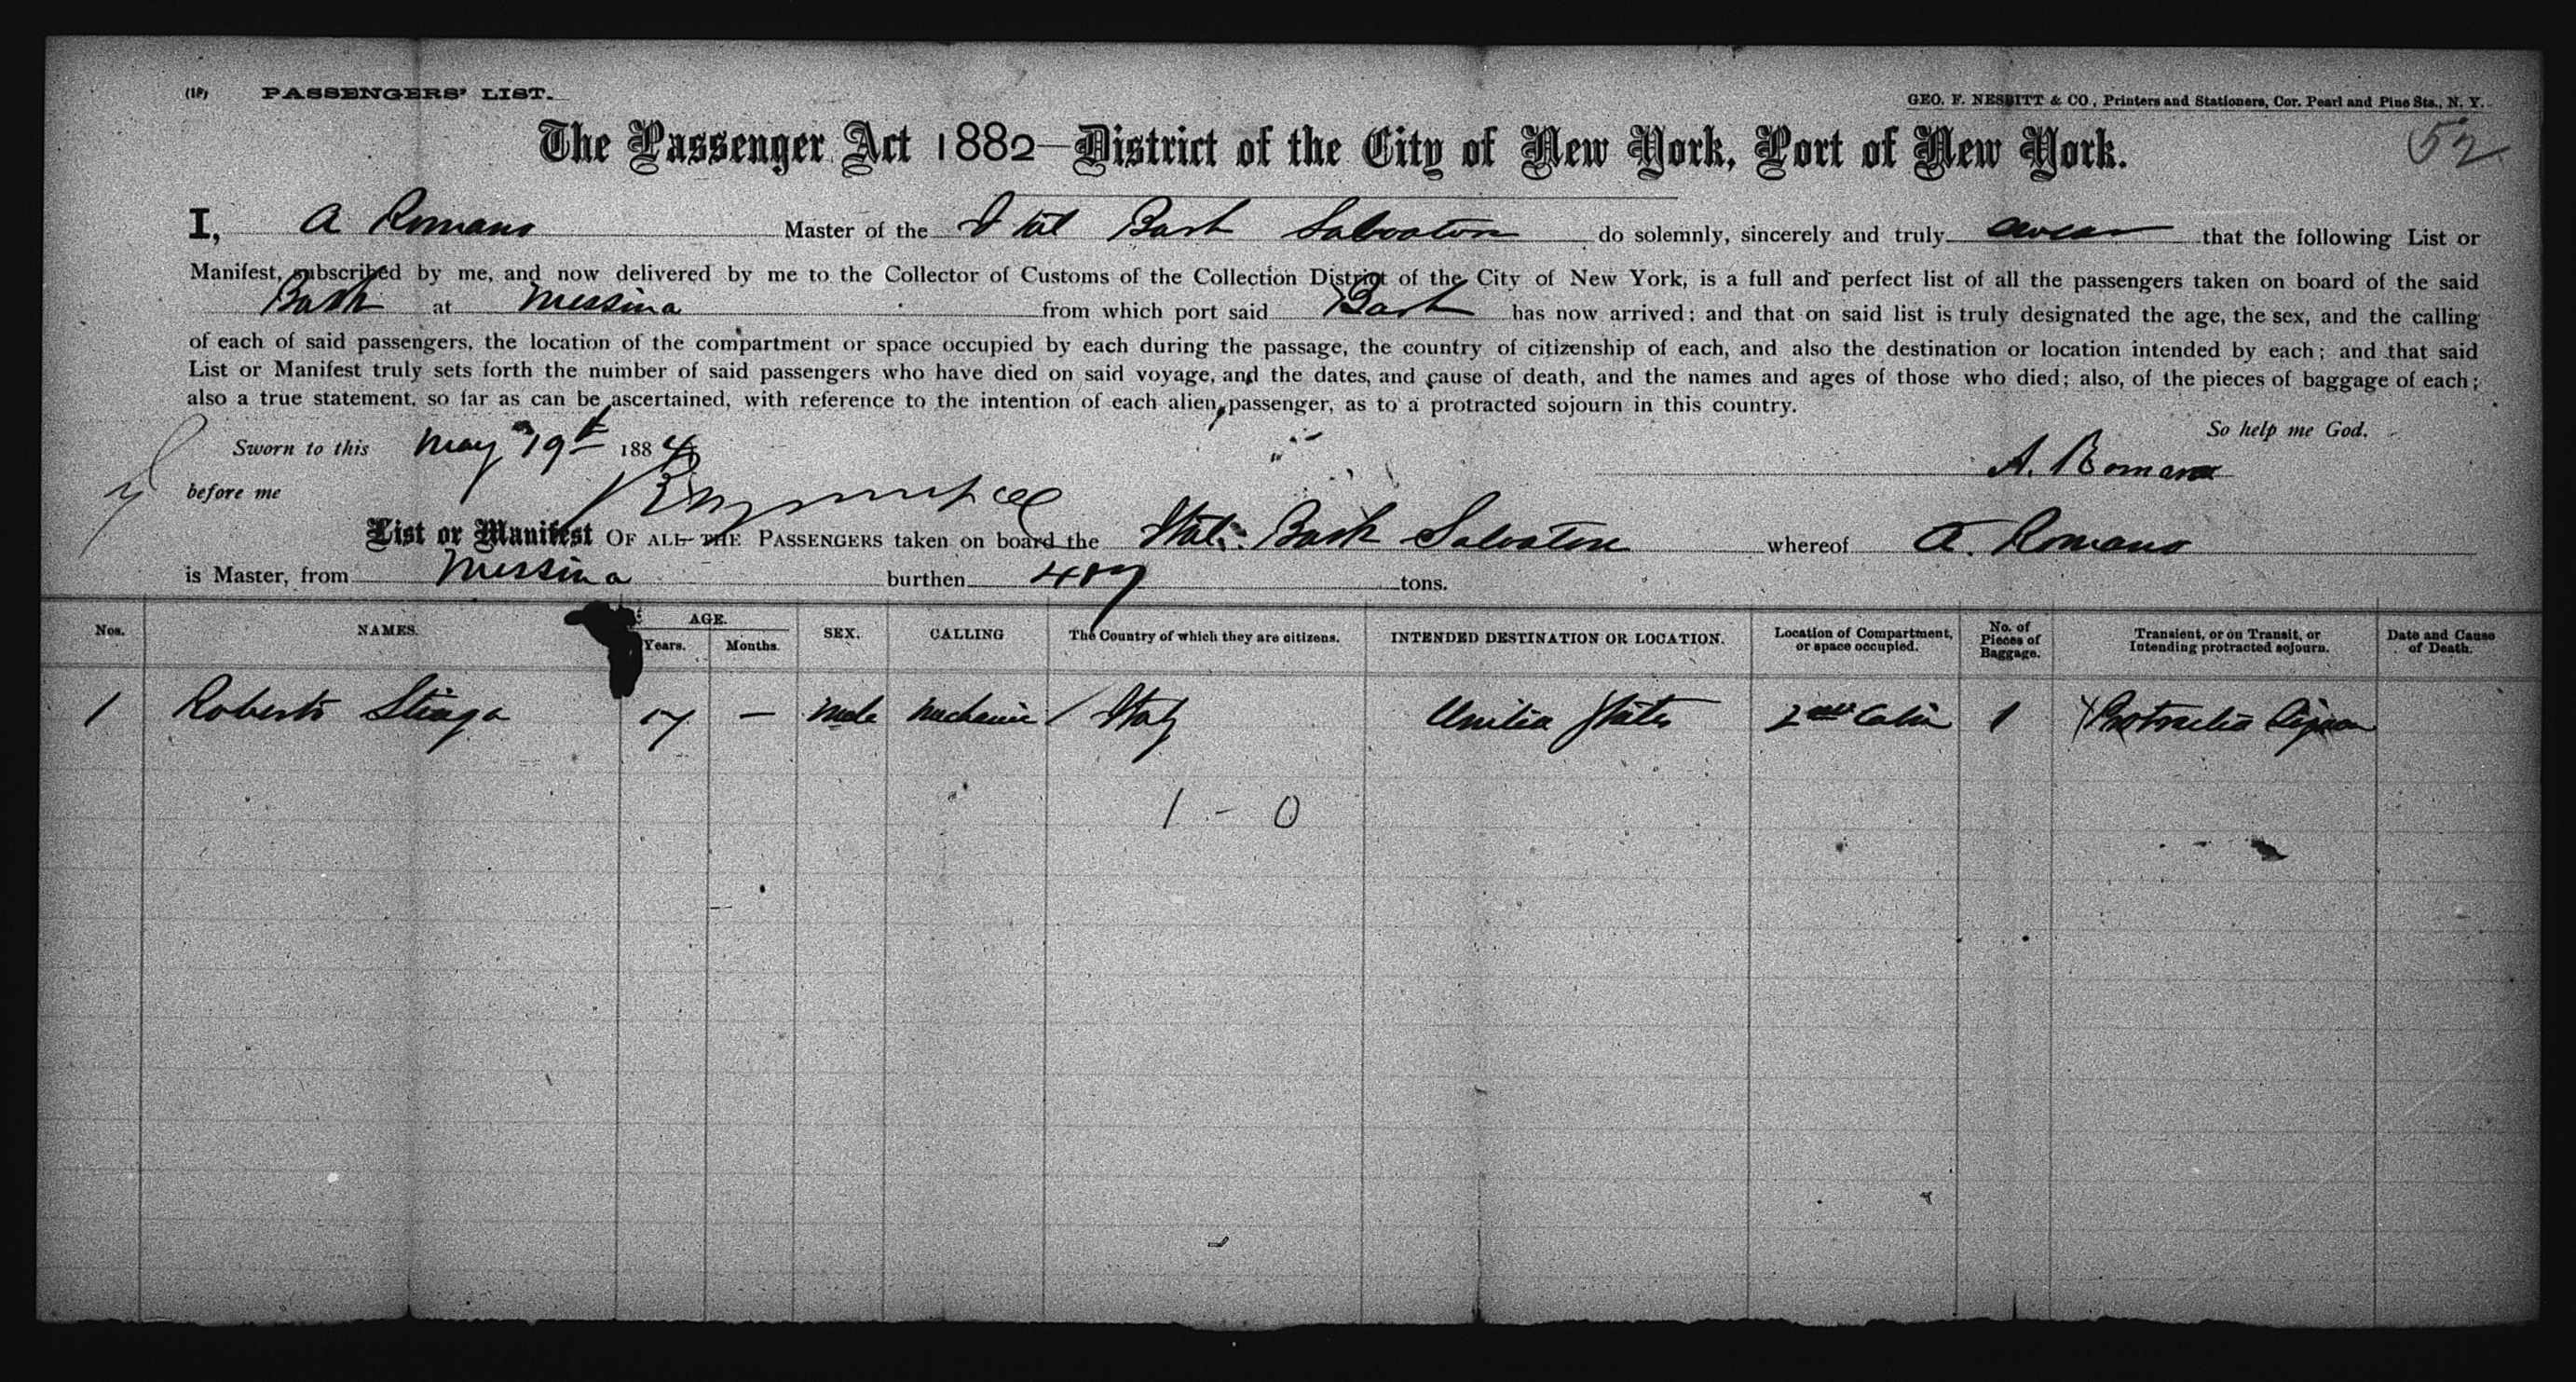 (18) PASSENGERS' LIST.
GEO. F. NESBITT & CO., Printers and Stationers, Cor. Pearl and Pine Sts., N. Y.
52
The Passenger Act 1882—District of the City of New York, Port of New York.
I, A Romano Master of the Ital Bark Salvatore do solemnly, sincerely and truly swear that the following List or
Manifest, subscribed by me, and now delivered by me to the Collector of Customs of the Collection District of the City of New York, is a full and perfect list of all the passengers taken on board of the said
Bark at Messina from which port said Bark has now arrived; and that on said list is truly designated the age, the sex, and the calling
of each of said passengers, the location of the compartment or space occupied by each during the passage, the country of citizenship of each, and also the destination or location intended by each; and that said
List or Manifest truly sets forth the number of said passengers who have died on said voyage, and the dates, and cause of death, and the names and ages of those who died; also, of the pieces of baggage of each;
also a true statement, so far as can be ascertained, with reference to the intention of each alien passenger, as to a protracted sojourn in this country.
So help me God.
Sworn to this May 19th 1884
A. Romano
before me
List or Manifest OF ALL THE PASSENGERS taken on board the Ital. Bark Salvatore whereof A. Romano
is Master, from Messina burthen 487 tons.
Nos. NAMES. AGE. Years. Months. SEX. CALLING The Country of which they are citizens. INTENDED DESTINATION OR LOCATION. Location of Compartment, or space occupied. No. of Pieces of Baggage. Transient, or on Transit, or Intending protracted sojourn. Date and Cause of Death.
1 Roberto 17 — Male Mechanic Italy United States 2nd Cabin 1 Protracted Sojourn
1 - 0